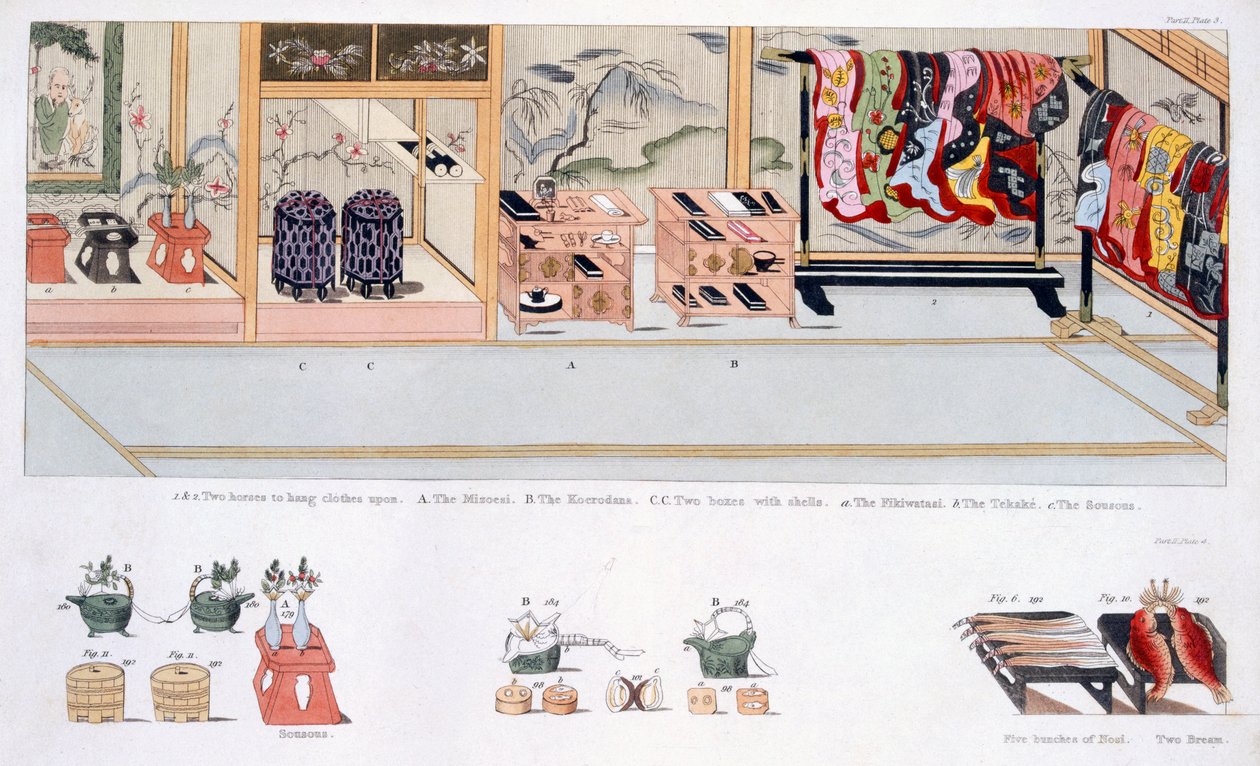 Part II. Plate 3.
a b c
2
1
C C A B
1 & 2. Two horses to hang clothes upon. A. The Mizoesi. B. The Koerodana. C.C. Two boxes with shells. a. The Fikiwatasi. b. The Tekaké. c. The Sousons.
Part II. Plate 4.
B B
180 180
A
179
a b
Fig. 11. 192 Fig. 11. 192
Sousous.
B 184 B 184
b a
b 98 b c 101 c a 98 a
Fig. 6. 192 Fig. 10. 192
Five bunches of Nosi. Two Bream.